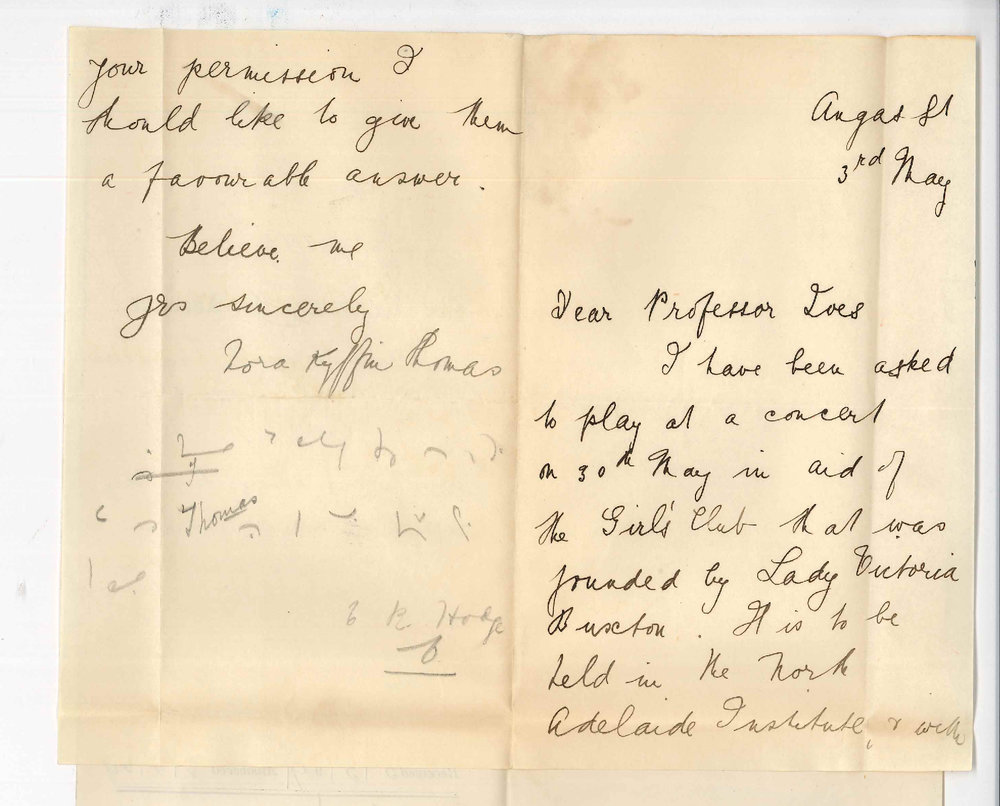 Angas St
3rd May
Dear Professor Ives
I have been asked
to play at a concert
on 30th May in aid of
the Girls' Club that was
founded by Lady Victoria
Buxton. It is to be
held in the North
Adelaide Institute, & with
your permission I
should like to give them
a favourable answer.
Believe me
yrs sincerely
Nora Kyffin Thomas
Thomas
R. Hodge